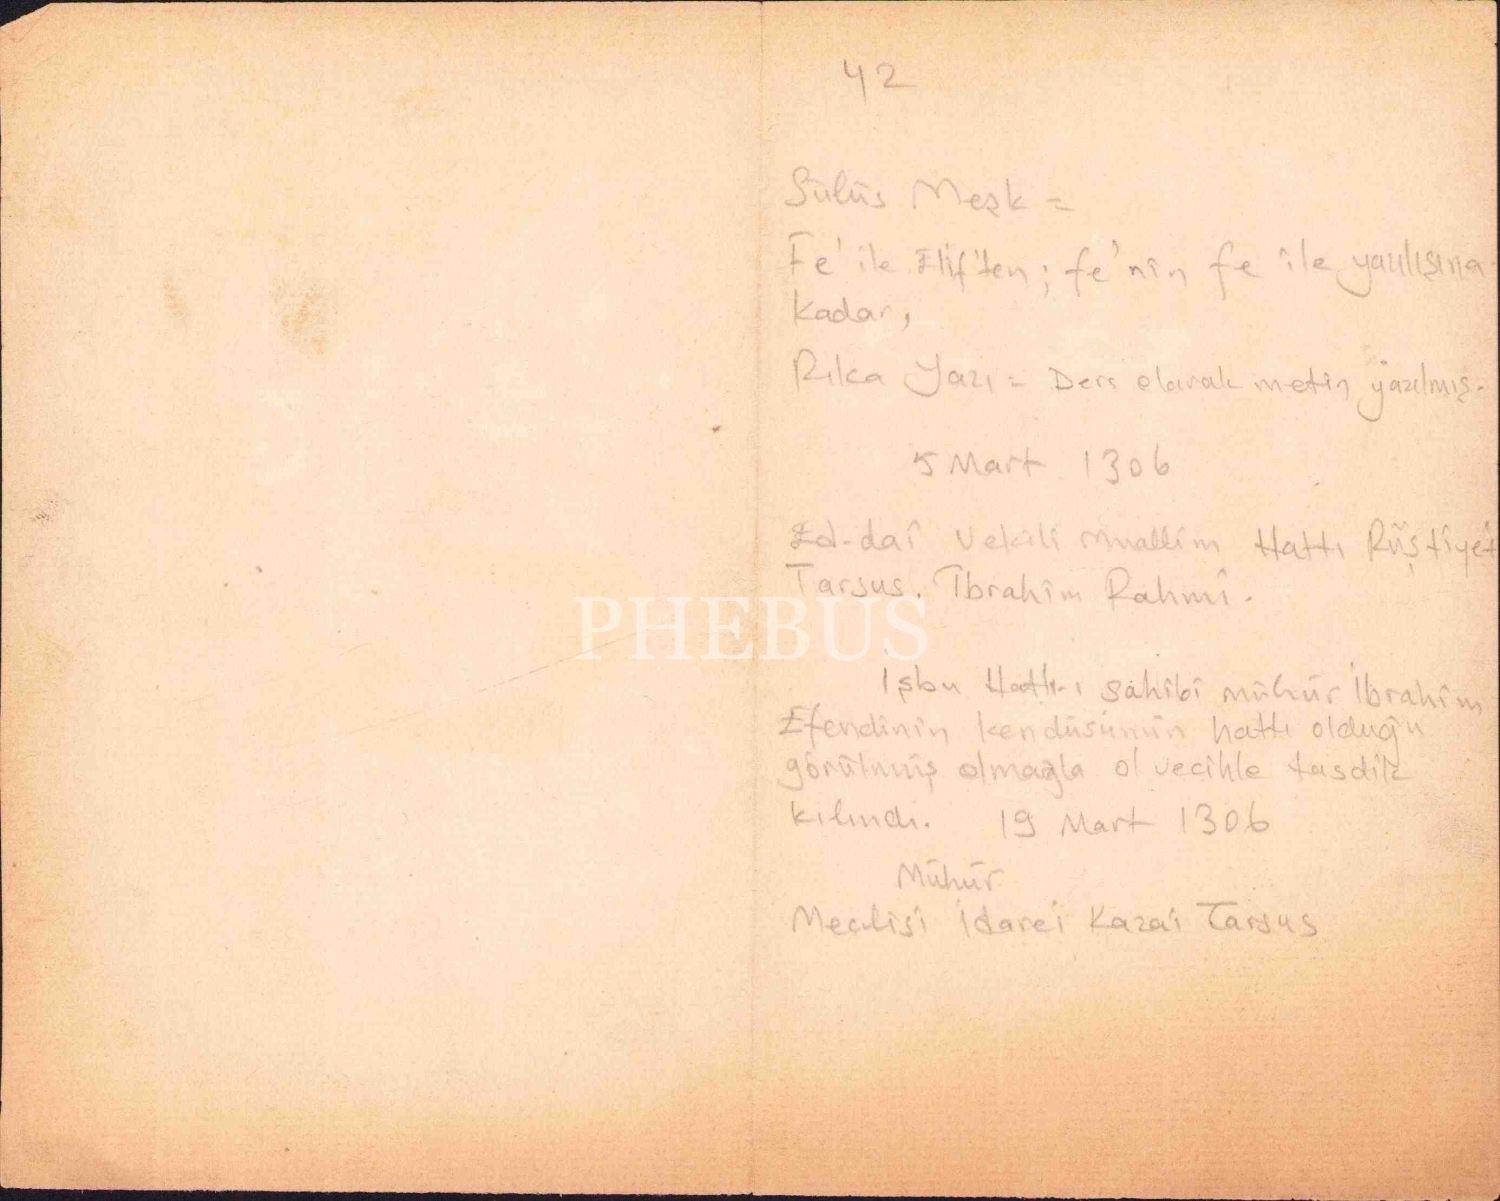 42
Sülüs Meşk =
Fe' ile Elif'ten; fe'nin fe ile yazılışına
kadar,
Rıka Yazı = Ders olarak metin yazılmış.
5 Mart 1306
Ed-dai Vekili Muallim Hattı Rüştiye'i
Tarsus. İbrahim Rahmi.
PHEBUS
İşbu Hatt-ı sahibi mühür İbrahim
Efendinin kendüsünün hattı olduğu
görülmüş olmağla ol vecihle tasdik
kılındı. 19 Mart 1306
Mühür
Meclisi İdare'i Kaza'i Tarsus